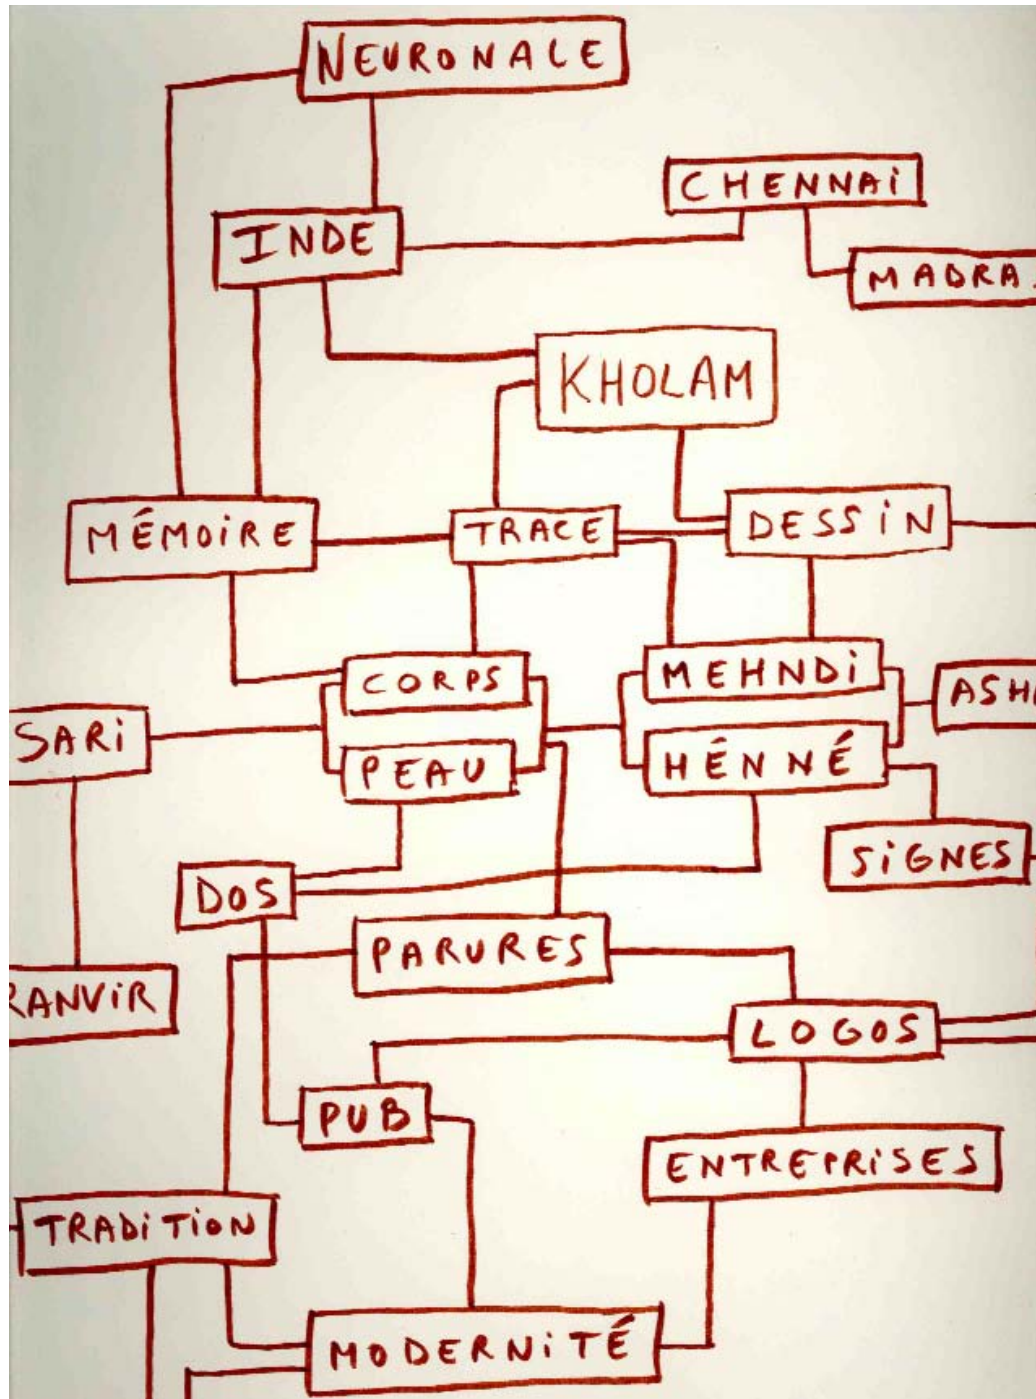 NEURONALE
CHENNAi
INDE
MADRA
KHOLAM
MÉMOiRE
TRACE
DESSiN
CORPS
MEHNDi
ASH
SARi
PEAU
HÉNNÉ
SiGNES
DOS
PARURES
RANViR
LOGOS
PUB
ENTREPRiSES
TRADiTiON
MODERNiTÉ